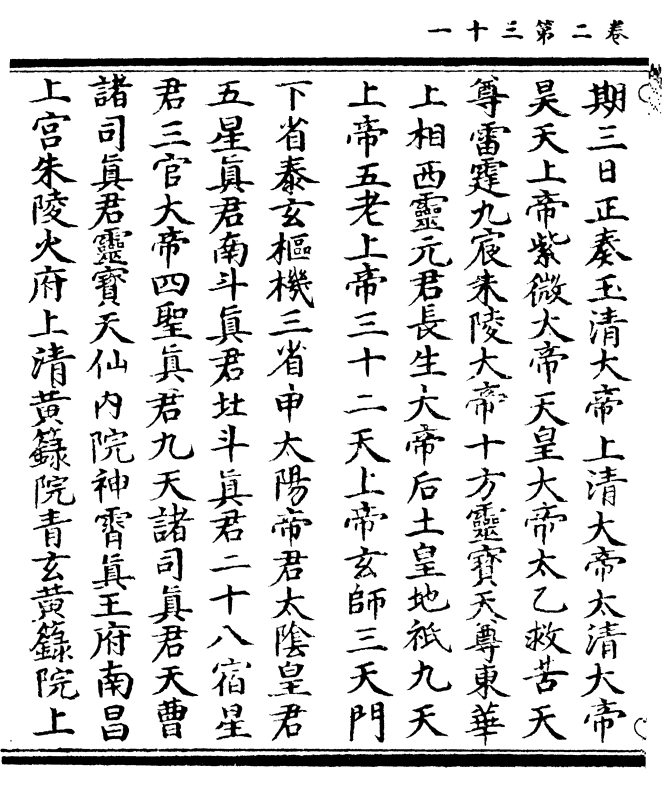 卷二第三十一
期三日正奏玉清大帝上清大帝太清大帝
昊天上帝紫微大帝天皇大帝太乙救苦天
尊雷霆九宸朱陵大帝十方靈寶天尊東華
上相西靈元君長生大帝后土皇地祇九天
上帝五老上帝三十二天上帝玄師三天門
下省泰玄樞機三省申太陽帝君太陰皇君
五星眞君南斗眞君北斗眞君二十八宿星
君三官大帝四聖眞君九天諸司眞君天曹
諸司眞君靈寶天仙內院神霄眞王府南昌
上宮朱陵火府上清黃籙院青玄黃籙院上